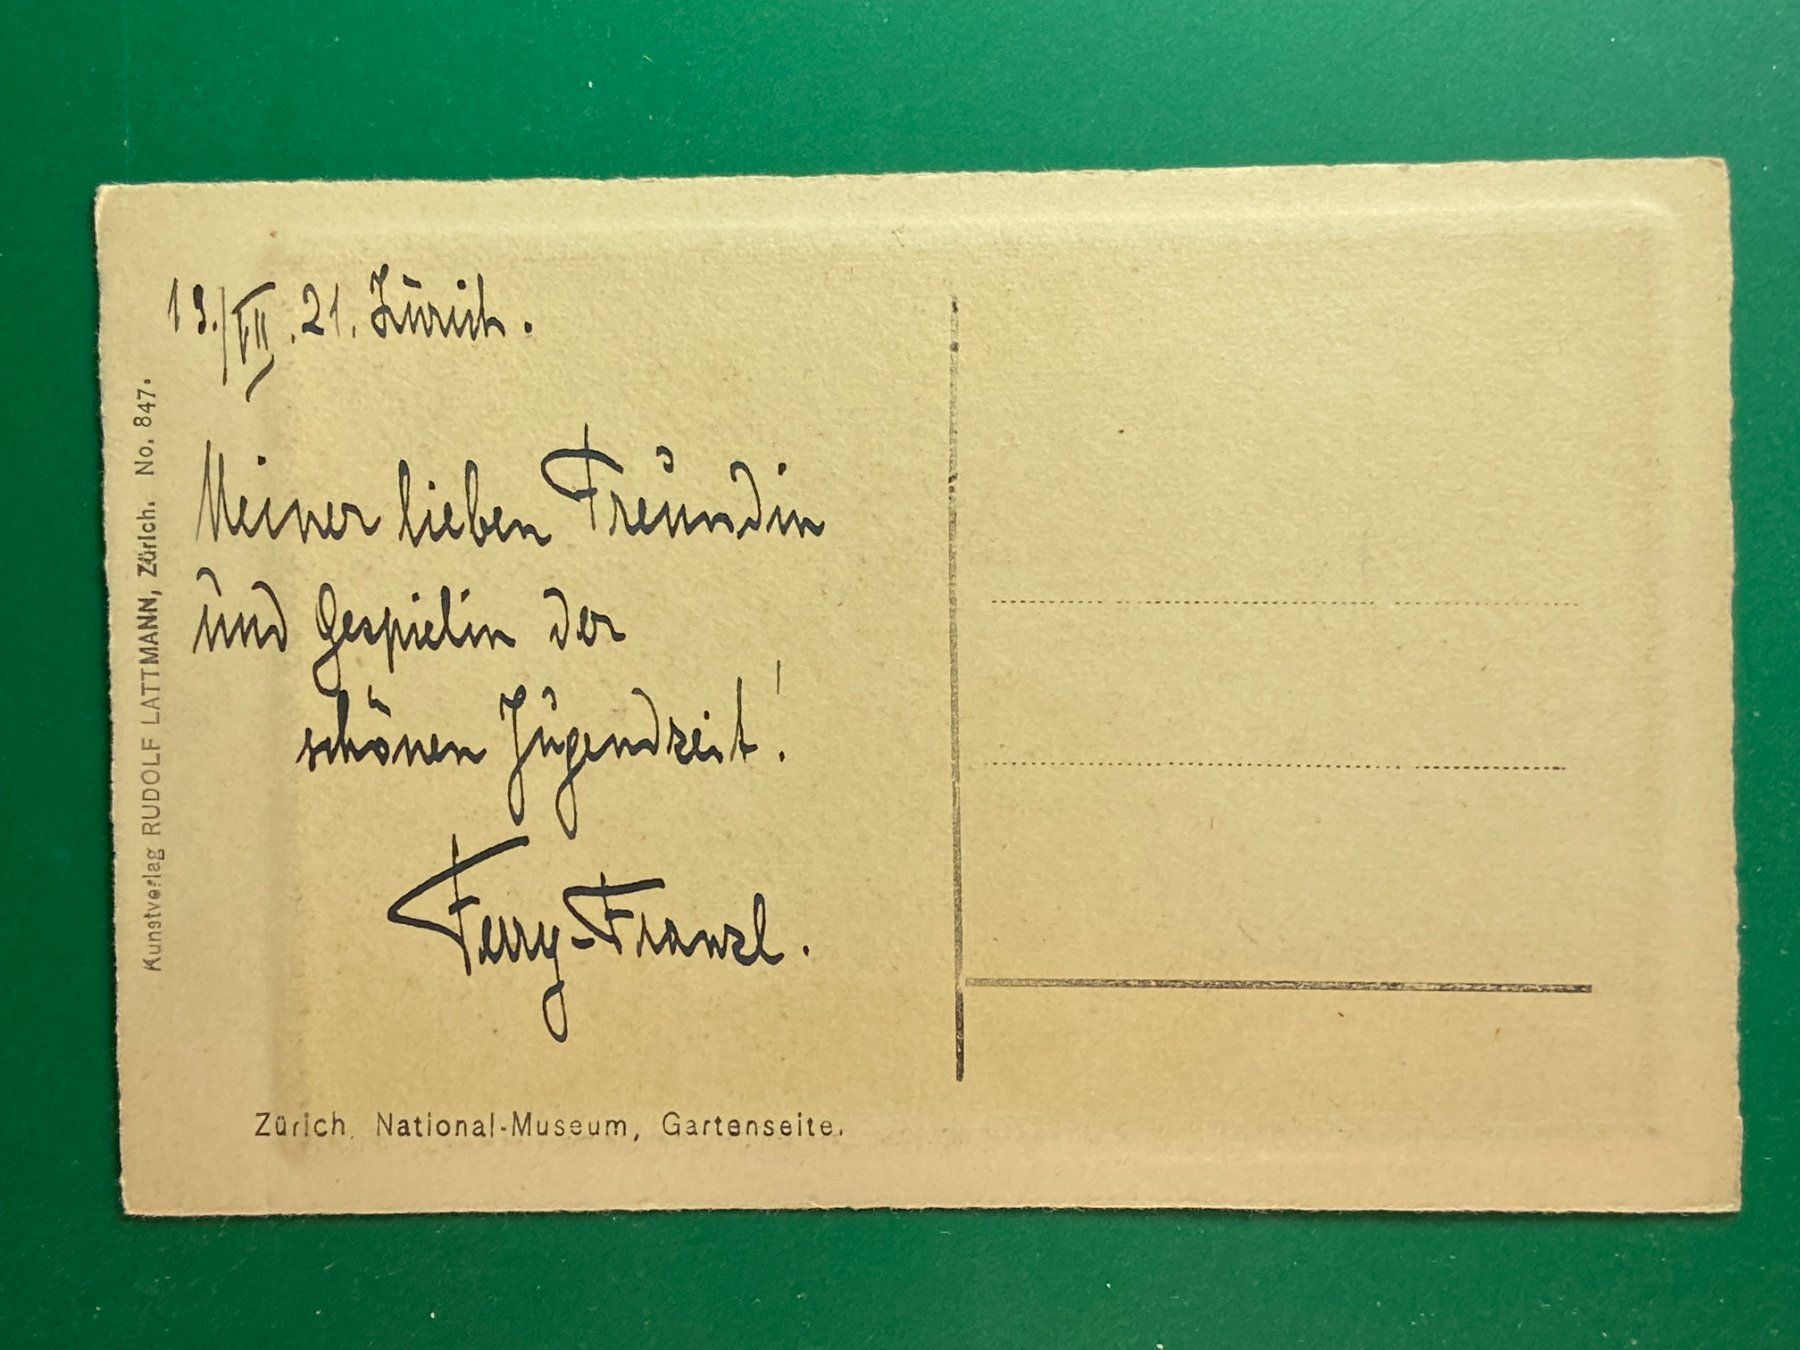 13./VII.21. Zürich.
Meiner lieben Freundin
und Gespielin der
schönen Jugendzeit!
Ferry-Franzl.
Zürich, National-Museum, Gartenseite.
Kunstverlag RUDOLF LATTMANN, Zürich. No. 847.